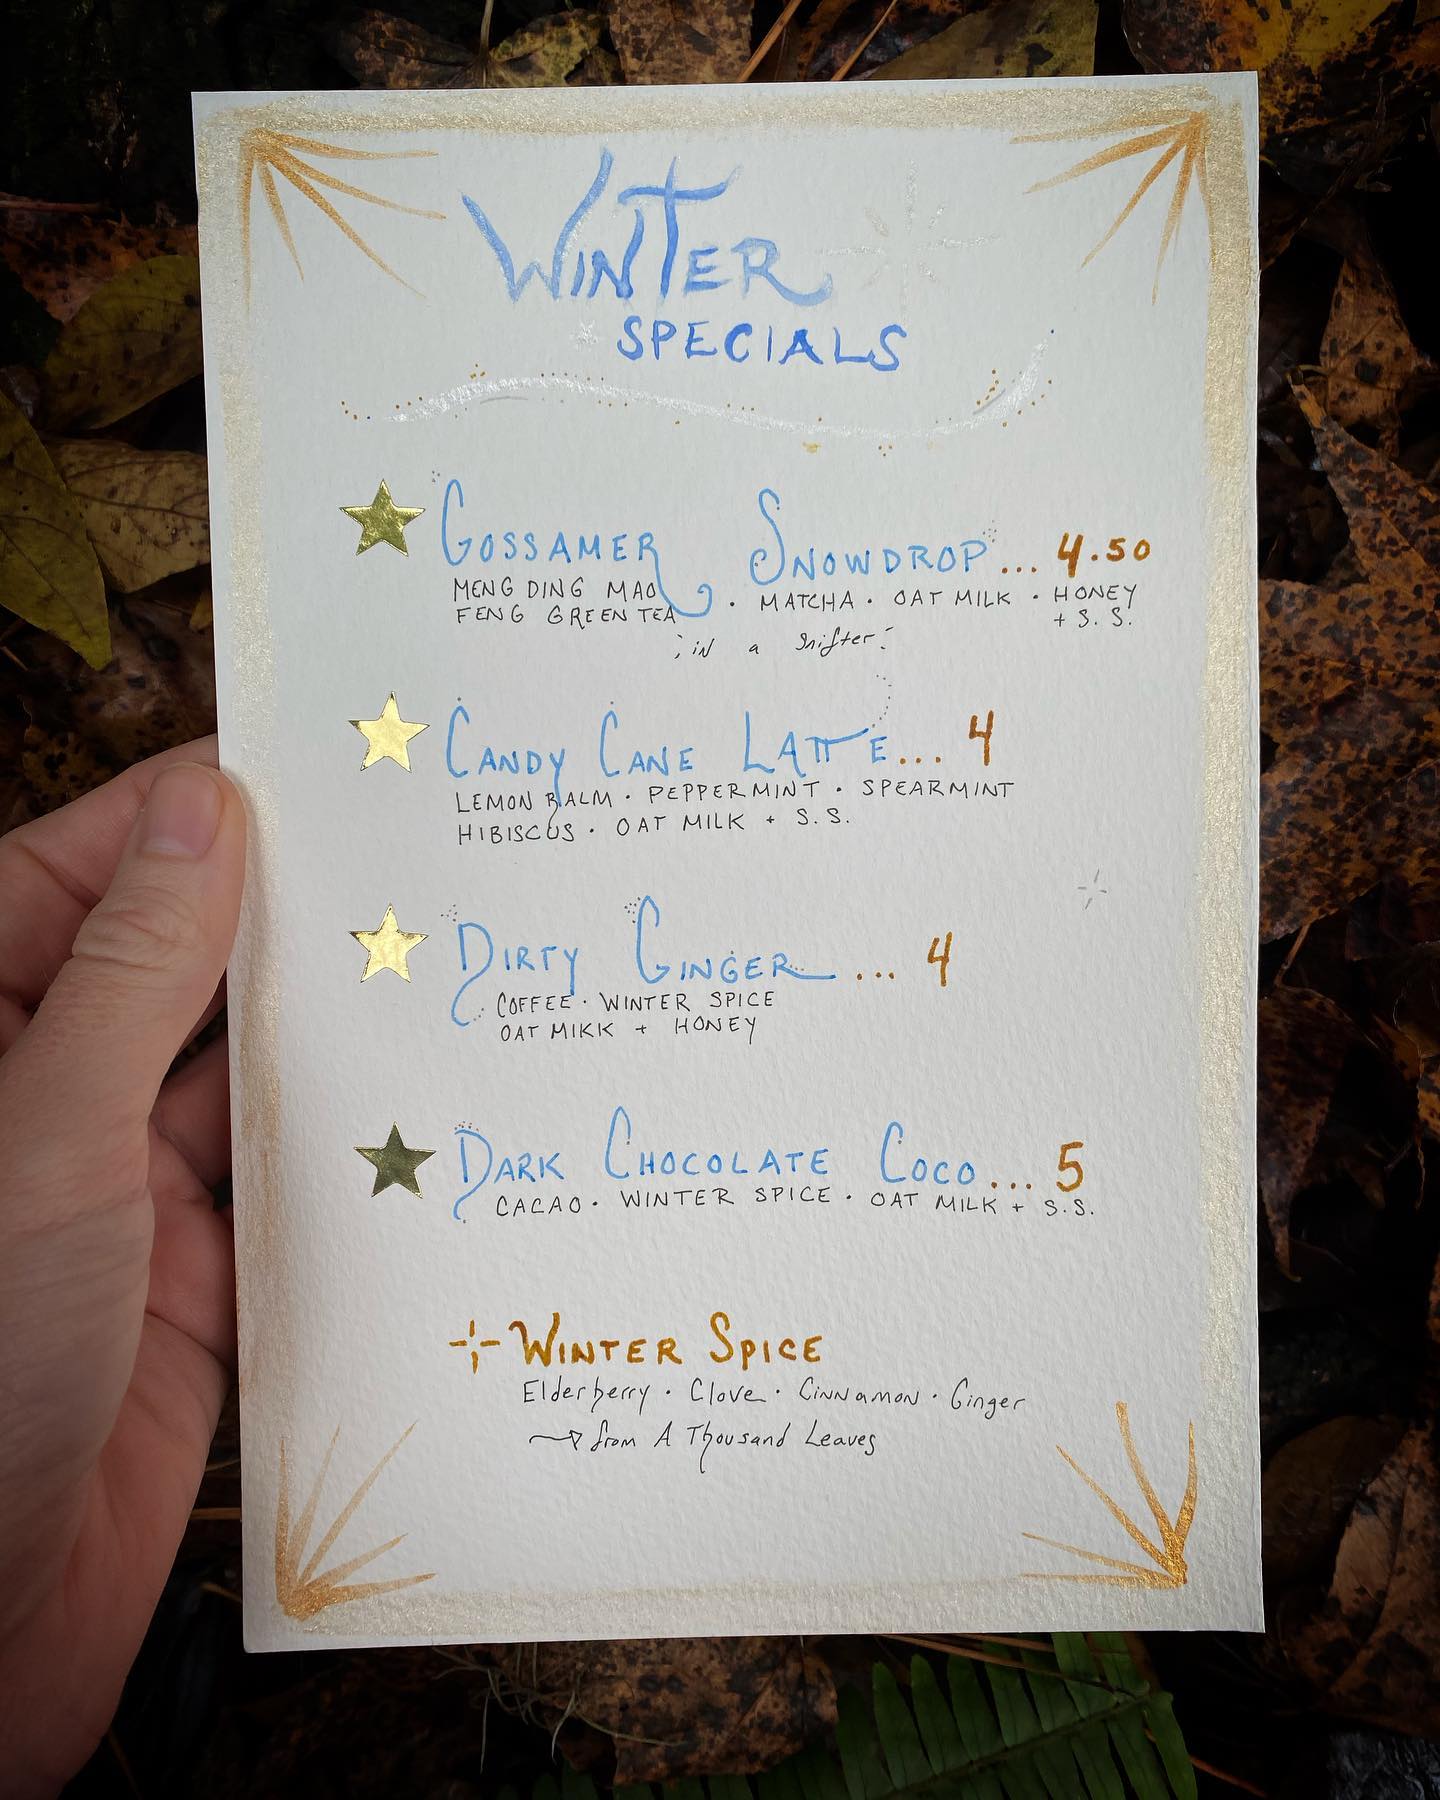 WINTER
SPECIALS
GOSSAMER SNOWDROP... 4.50
MENG DING MAO
FENG GREEN TEA · MATCHA · OAT MILK · HONEY
+ S.S.
in a snifter
CANDY CANE LATTE... 4
LEMON BALM · PEPPERMINT · SPEARMINT
HIBISCUS · OAT MILK + S.S.
DIRTY GINGER... 4
COFFEE · WINTER SPICE
OAT MIKK + HONEY
DARK CHOCOLATE COCO... 5
CACAO · WINTER SPICE · OAT MILK + S.S.
WINTER SPICE
Elderberry · Clove · Cinnamon · Ginger
→ from A Thousand Leaves